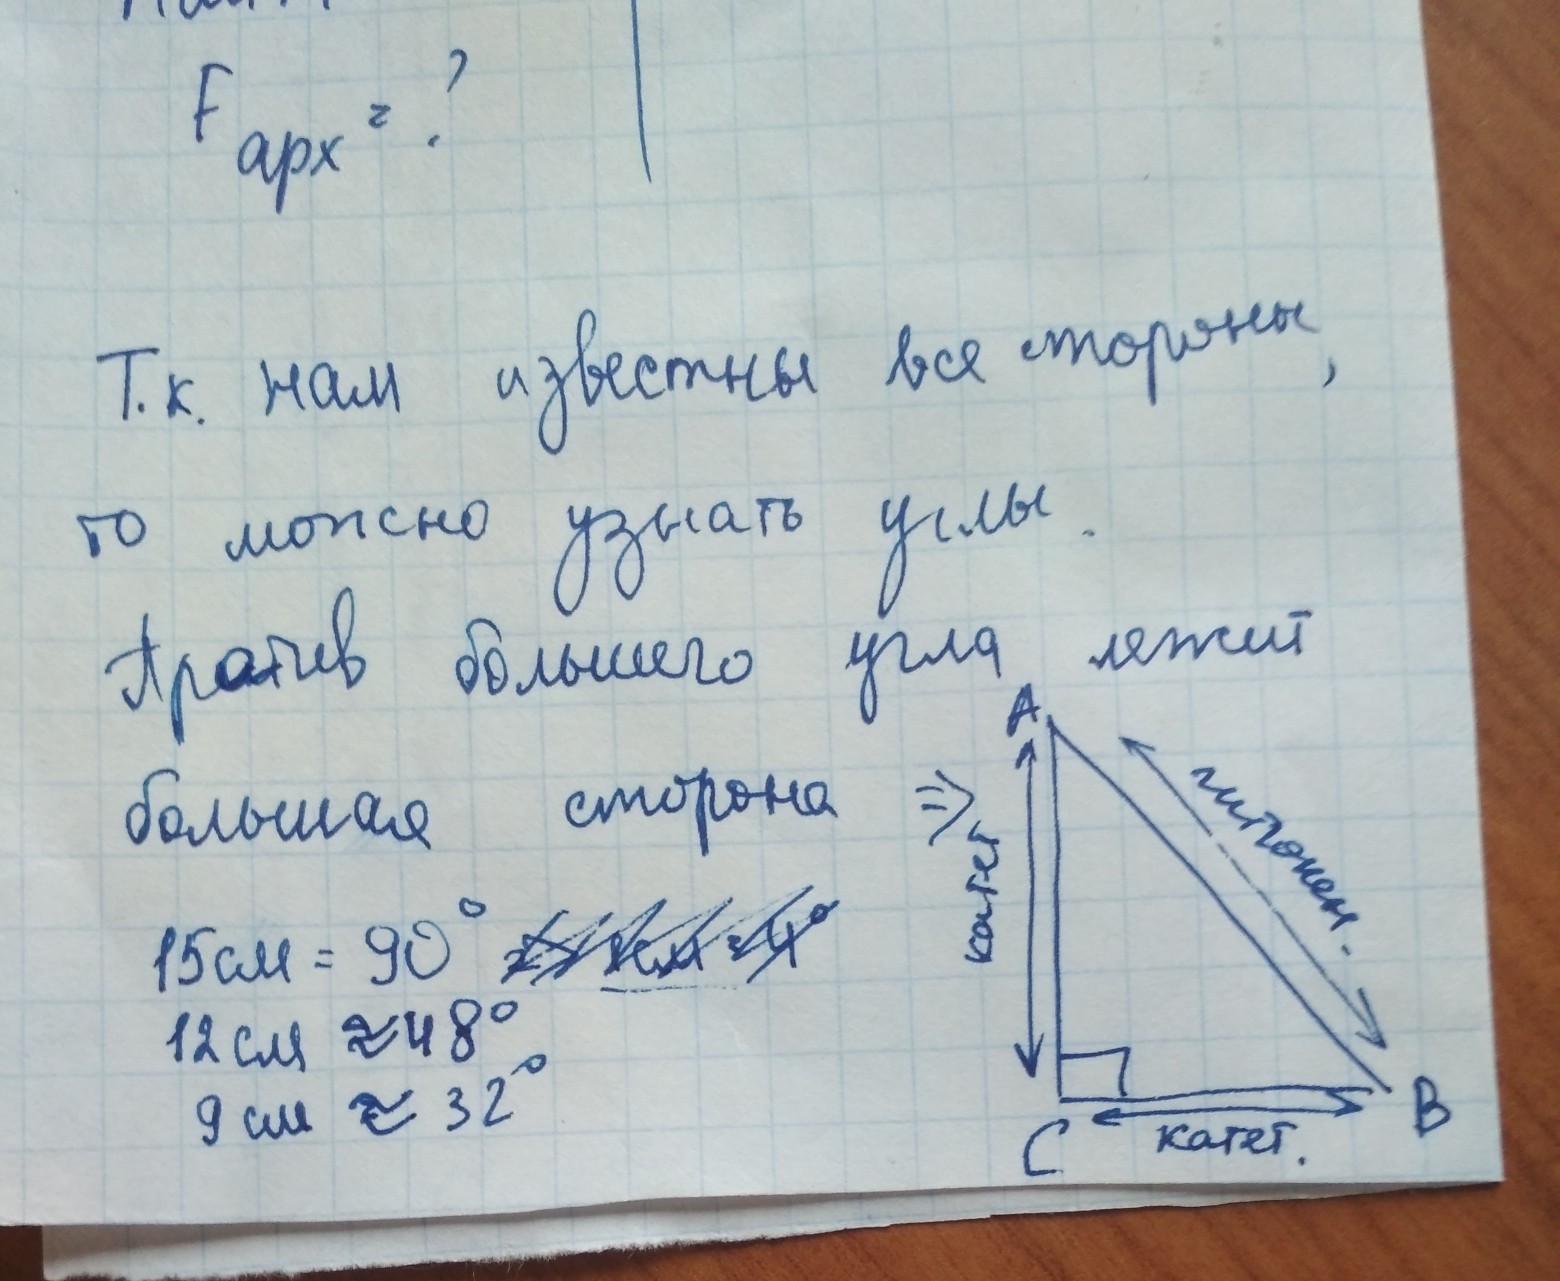 Fарх = ?
Т.к. нам известны все стороны,
то можно узнать углы.
Против большего угла лежит
большая сторона =>
15см = 90°
12см ≈ 48°
9см ≈ 32°
A
катет
гипотен.
C
катет.
B